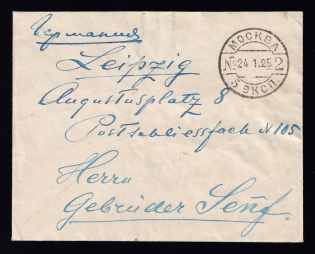 Германия
Leipzig
Augustusplatz 8
Postschliessfach N 105
Herrn
Gebrüder Senf.
МОСКВА
№ 24 1.25 2
5 эксп.